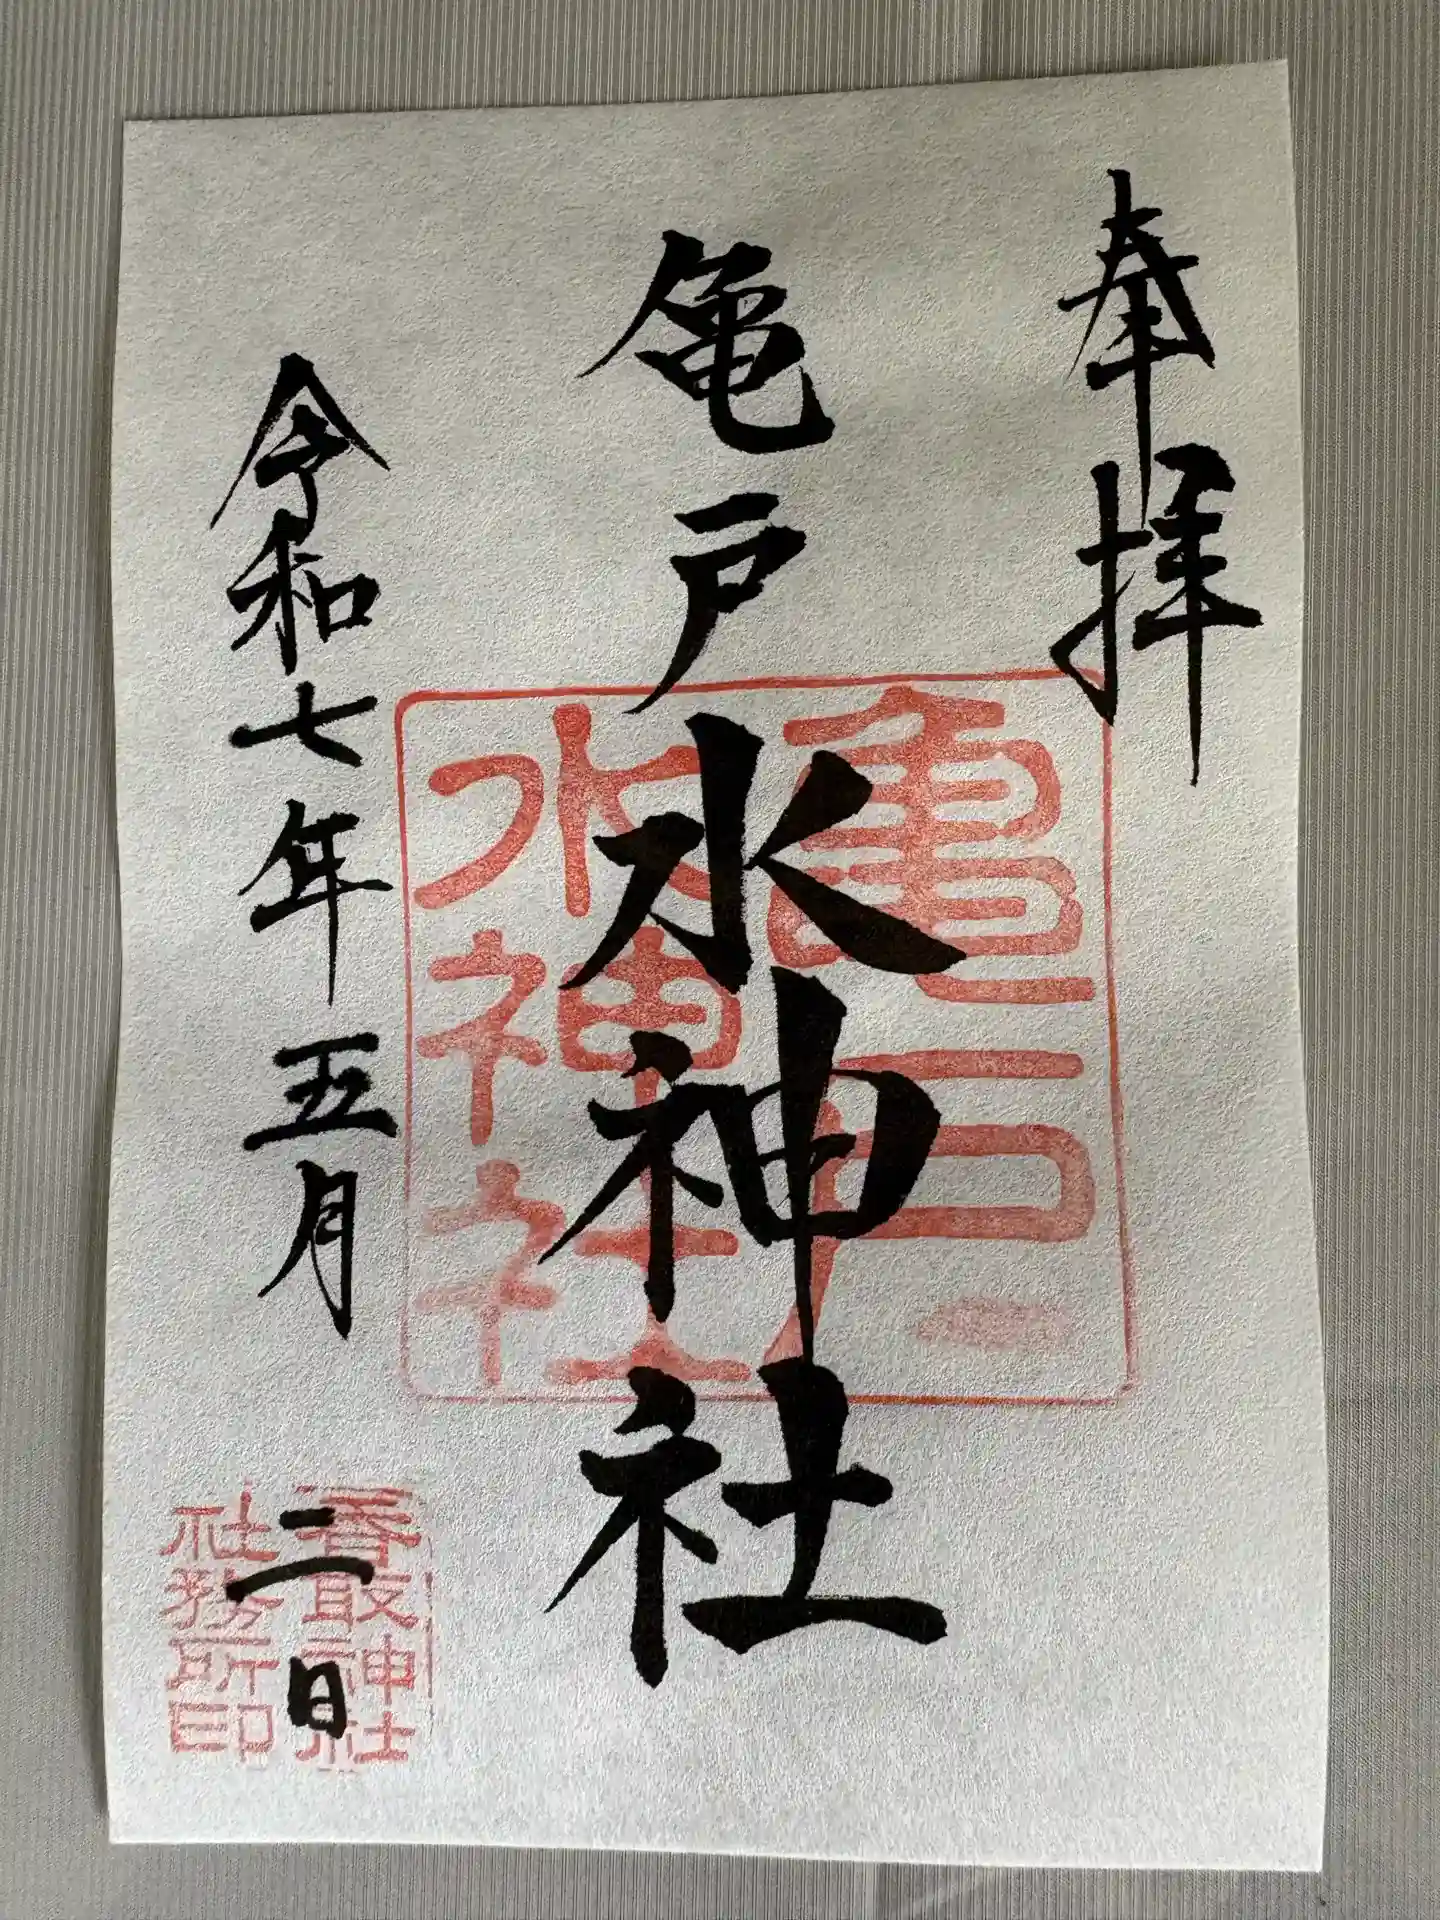 奉拝
亀戸水神社
令和七年五月二日
亀戸
水神社
香取神社
社務所印